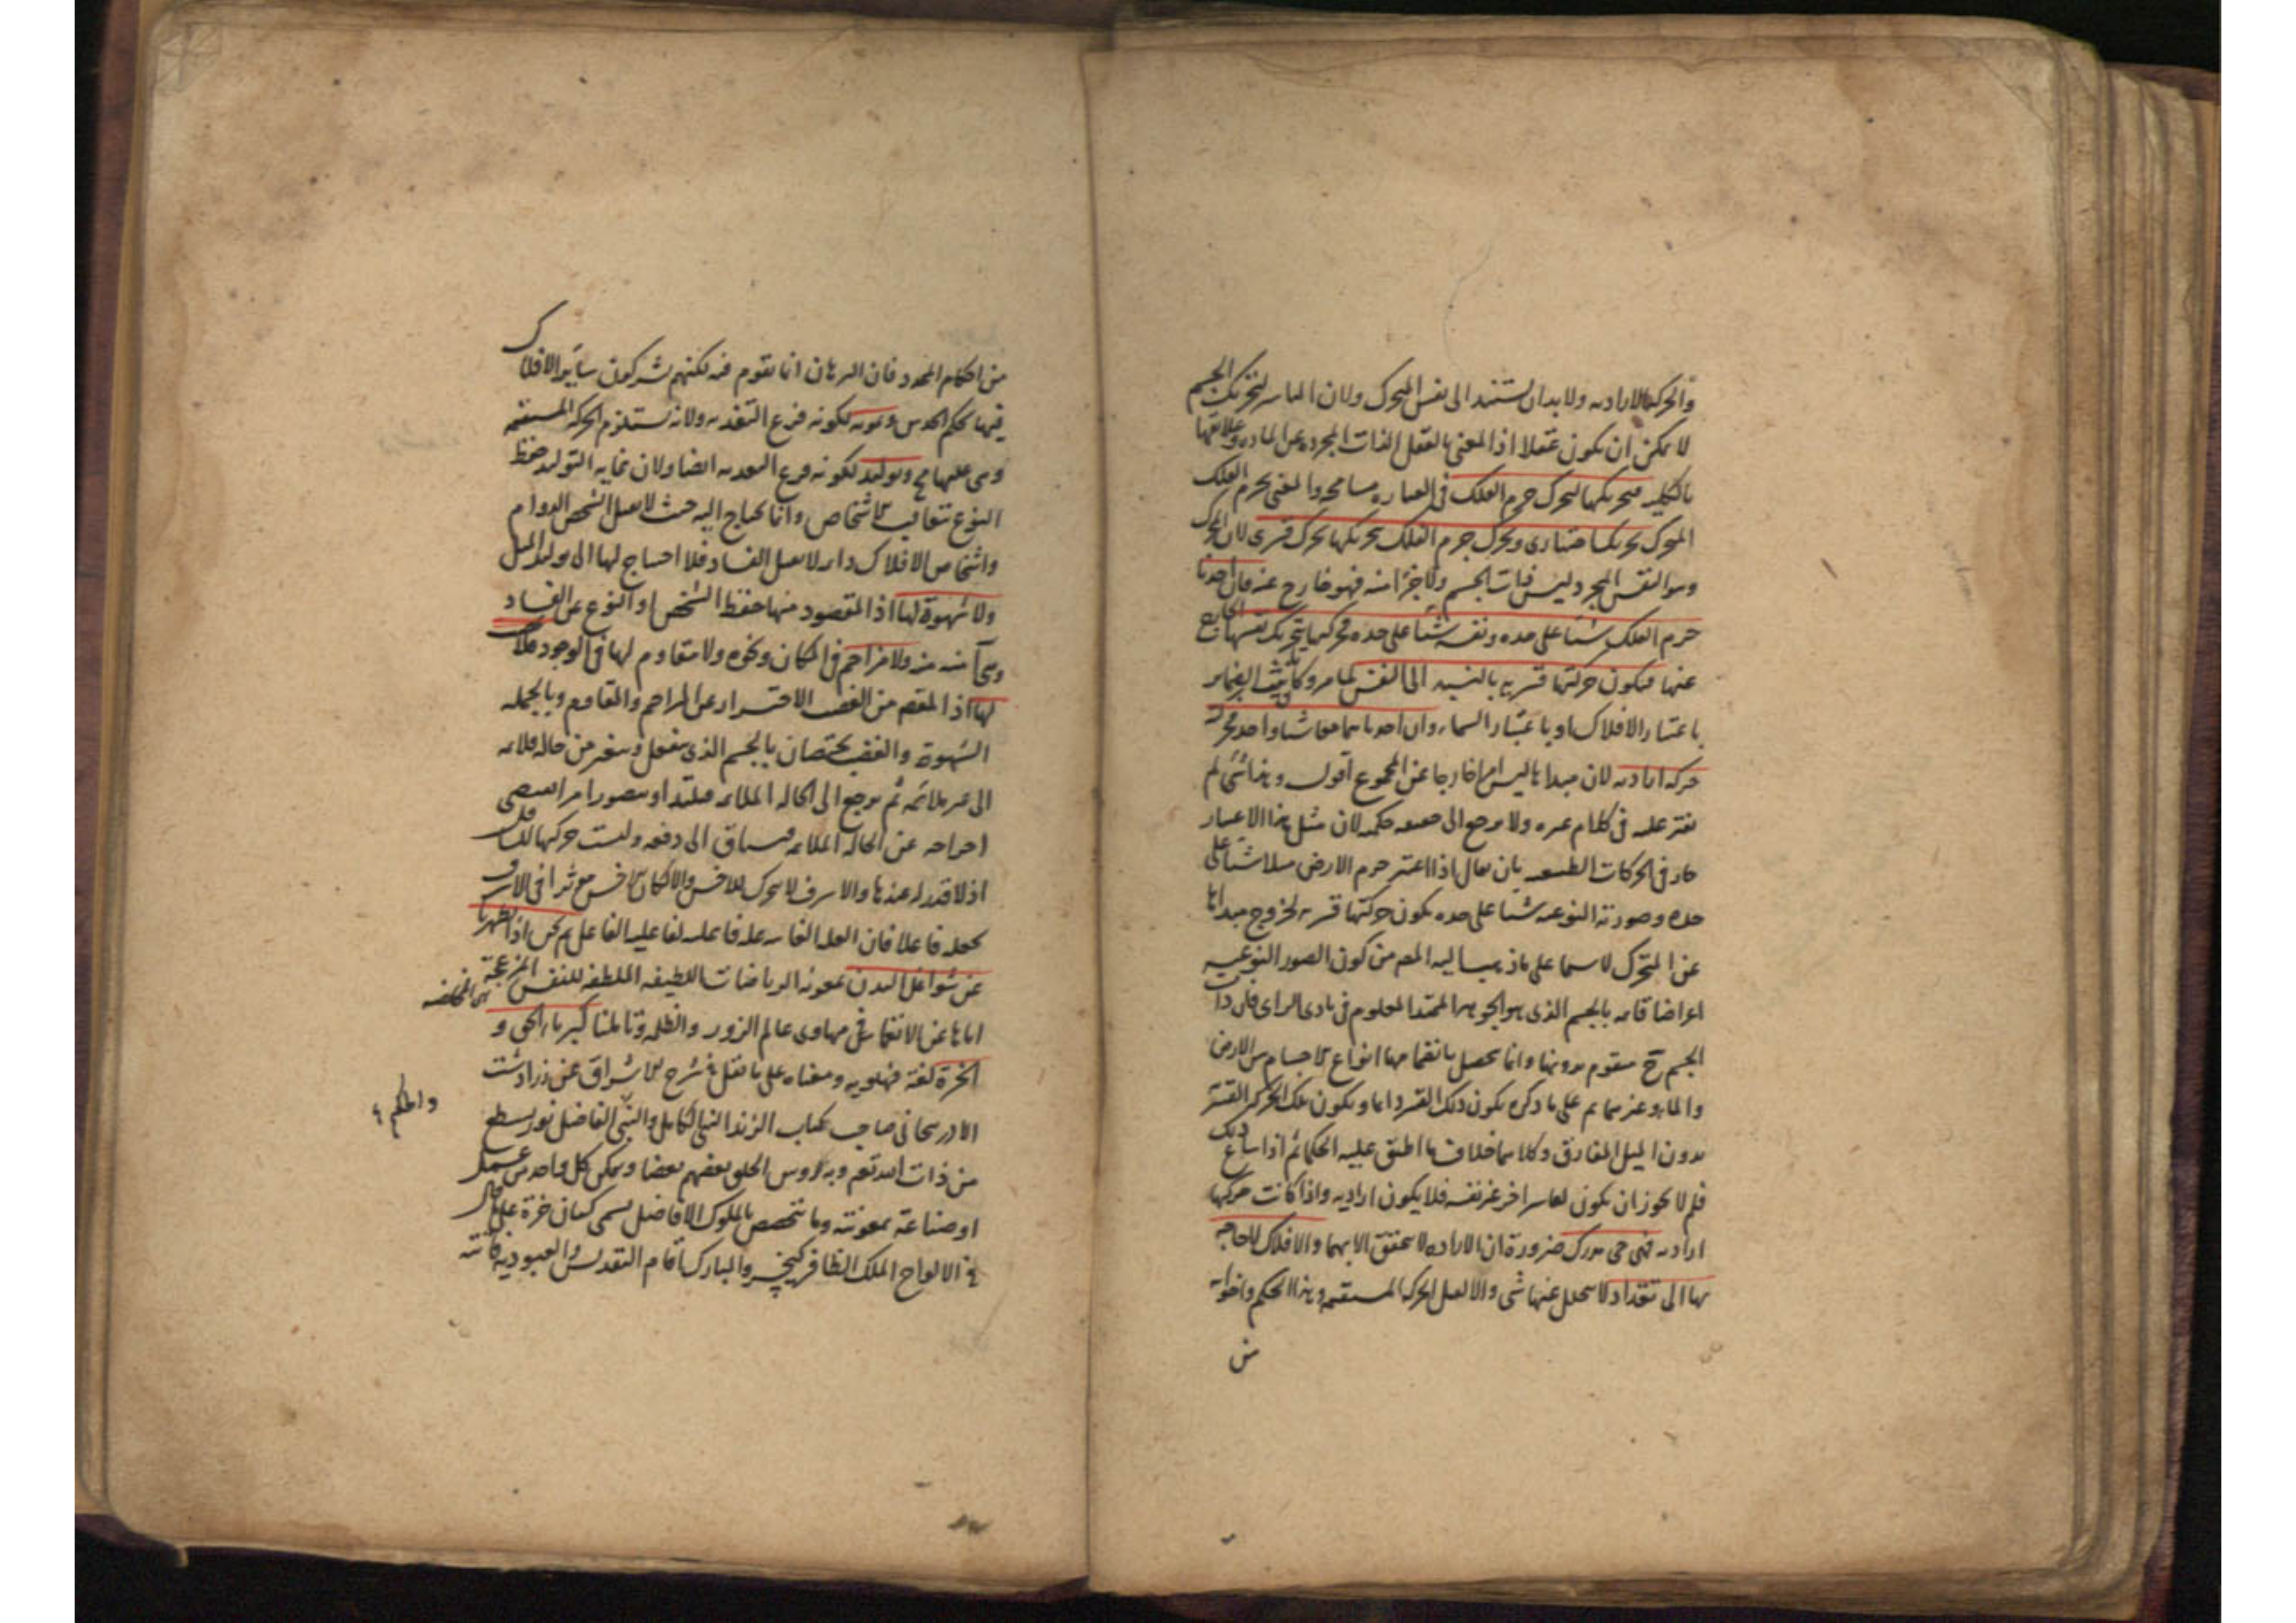 والحركة الارادية ولابد ان يستند الى نفس المتحرك ولان المباشر لتحريك الجسم
لا يمكن ان يكون عقلا اذ المعنى بالعقل الذات المجردة عن المادة وعلائقها
بالكلية فتحريكها لتحرك جرم الفلك فى العبارة مسامحة والمعنى بجرم الفلك
المتحرك تحريكا اختيارى وتحرك جرم الفلك بتحريكها تحرك قسرى لان المحرك
وهو النفس المجرد ليس ذات الجسم ولا جزءا منه فهو خارج عنه فان اخذنا
جرم الفلك شيئا على حده ونفسه شيئا على حده فحركتها بتحريك نفسها الخارج
عنها فيكون حركتها قسرية بالنسبة الى النفس لما مر وتأنيث الضماير
باعتبار الافلاك او باعتبار السماء وان اخذناهما معا شيئا واحدا فحركته
حركة ارادية لان مبداها ليس امرا خارجا عن المجموع اقول وهذا شى لم
نعثر عليه فى كلام غيره ولا يرجع الى حكمة لان مثل هذا الاعتبار
جار فى الحركات الطبيعية بان يقال اذا اعتبر جرم الارض مثلا شيئا على
حده وصورته النوعية شيئا على حده يكون حركتها قسرية لخروج مبداها
عن المتحرك لا سيما على ما ذهب اليه المص من كون الصور النوعية
اعراضا قائمة بالجسم الذى هو الجوهر الممتد المعلوم فى بادى الراى فان ذات
الجسم ح متقوم بدونها وانما يحصل بانضمامها انواع الاجسام من الارض
والماء وغيرهما ثم على ما ذكره يكون ذلك القسر دائما ويكون تلك الحركة القسرية
بدون الميل المفارق وكلاهما خلاف ما اطبق عليه الحكماء ثم اذا ساغ ذلك
فلم لا يجوز ان يكون لقاسر اخر غير نفسه فلا يكون ارادية واذا كانت حركتها
ارادية فهى حى مدرك ضرورة ان الارادة لا يتحقق الا بهما والافلاك لا حاجة
بها الى تغذ اذ لا يتحلل عنها شى والا لقبل الحركة المستقيمة وهذا الحكم واخواته
من
من احكام المحدد فان البرهان انما يقوم فيه لكنهم يشركون ساير الافلاك
فيها بحكم الحدس ونمو لكونه فرع التغذية ولانه يستلزم الحركة المستقيمة
وهى عليها مح وتوليد لكونه فرع التغذية ايضا ولان غاية التوليد حفظ
النوع بتعاقب الاشخاص وانما يحتاج اليه حيث لا يقبل الشخص الدوام
واشخاص الافلاك دائمة لا يقبل الفساد فلا احتياج لها الى توليد المثل
ولا شهوة لها اذ المقصود منها حفظ الشخص او النوع عن الفساد
وهى آمنة منه ولا مزاحم فى المكان ونحوه ولا مقاوم لها فى الوجود فلا غضب
لها اذ المقصد من الغضب الاحتراز عن المزاحم والمقاوم وبالجملة
الشهوة والغضب يختصان بالجسم الذى ينفعل ويتغير من حالة ملائمة
الى غير ملائمة ثم يرجع الى الحالة الملائمة فيلتذ او يتصور امرا يقتضى
اخراجه عن الحالة الملائمة فيساق الى دفعه وليست حركتها للسافل
اذ لا قدر له عندها والاشرف لا يتحرك للاخس والا لكان الاخس مؤثرا فى الاشرف
بجعله فاعلا فان العلة الغائية علة فاعلية لفاعلية الفاعل ثم نحن اذا تطهرنا
عن شواغل البدن بمعونة الرياضات اللطيفة الملطفة للنفس المزعجة
اياها عن الانغماس فى مهاوى عالم الزور والظلمة وتأملنا كبرياء الحق و
الخرة لغة فهلوية ومعناه على ما نقل فى شرح الاشراق عن زرادشت
الاذربيجانى صاحب كتاب الزند النبى الكامل والنبى الفاضل نور يسطع
من ذات الله تعه وبه يرؤس الخلق بعضهم بعضا ويتمكن كل واحد من عمل
او صناعة بمعونته وما يتخصص بالملوك الافاضل يسمى كيان خرة على ما قال
فى الالواح الملك الظافر كيخسرو المبارك اقام التقديس والعبودية فاتته